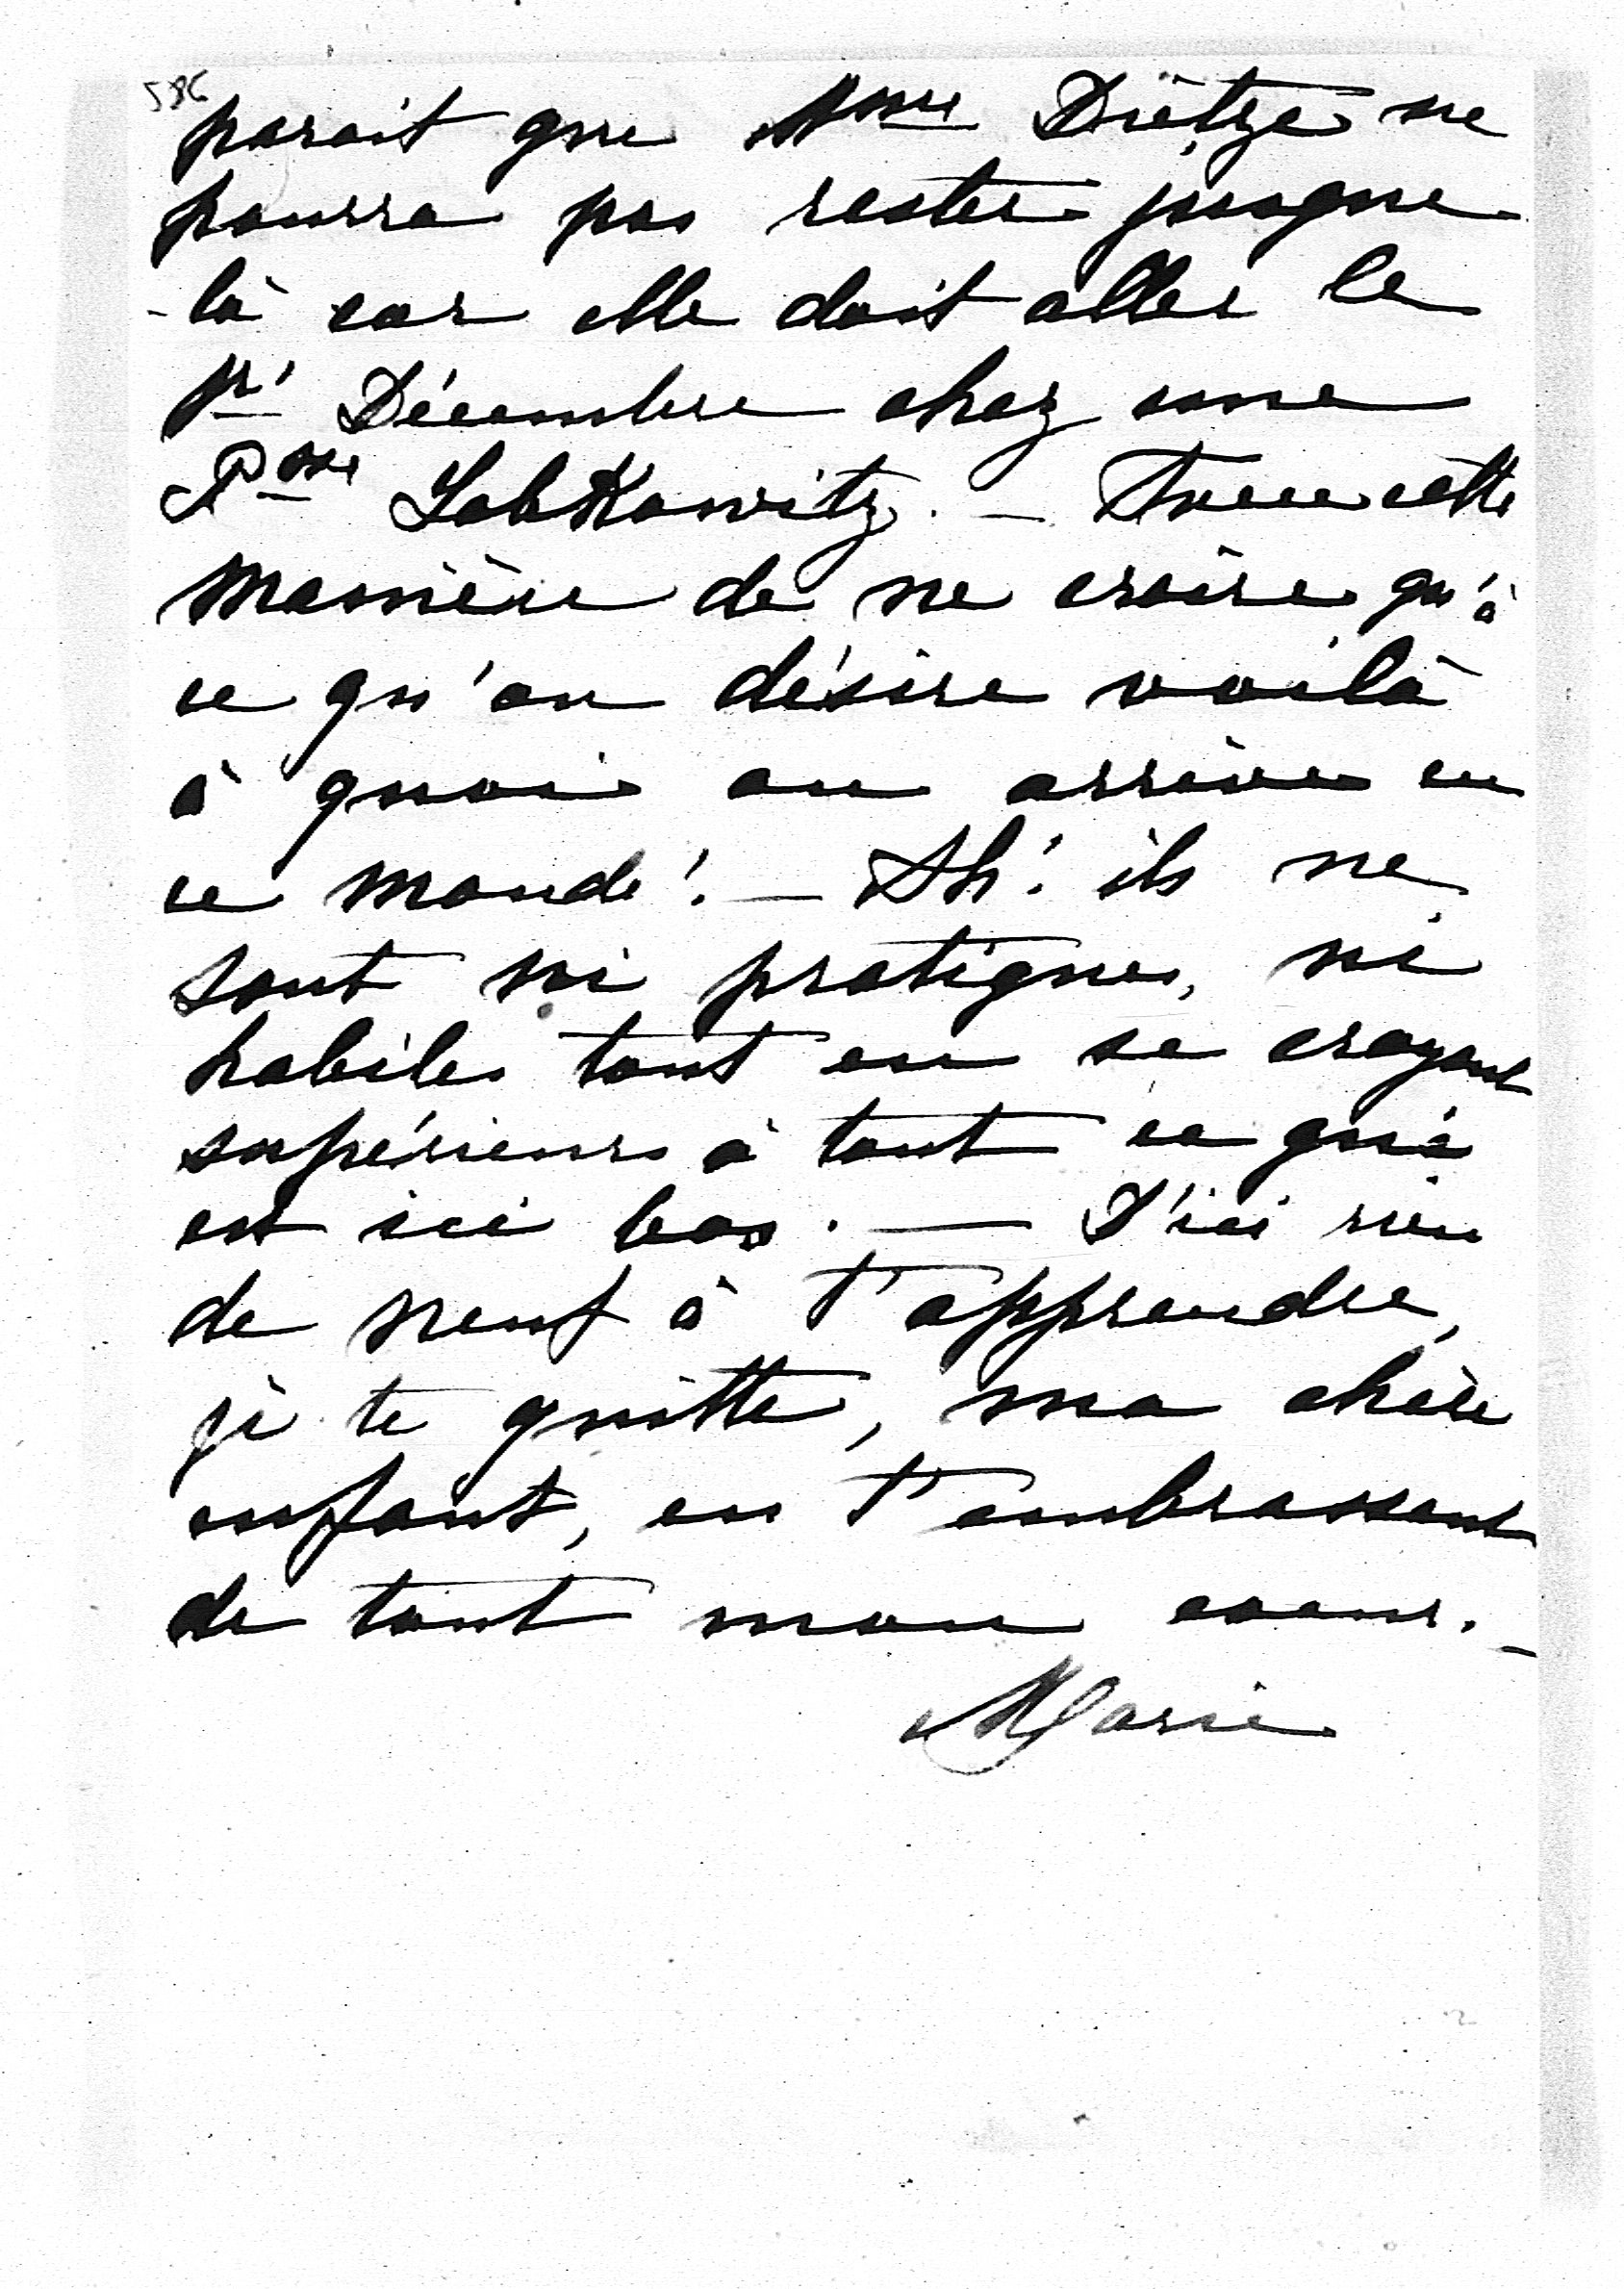 586
parait que Mme Dietze ne
pourra pas rester jusque
-là car elle doit aller le
pr Décembre chez une
Psse Lobkowitz. — Avec cette
manière de ne croire qu'à
ce qu'on désire voilà
à quoi on arrive en
ce monde! — Ah! ils ne
sont ni pratiques, ni
habiles tout en se croyant
supérieurs à tout ce qui
est ici bas. — D'ici rien
de neuf à t'apprendre,
je te quitte, ma chère
enfant, en t'embrassant
de tout mon coeur. —
Marie